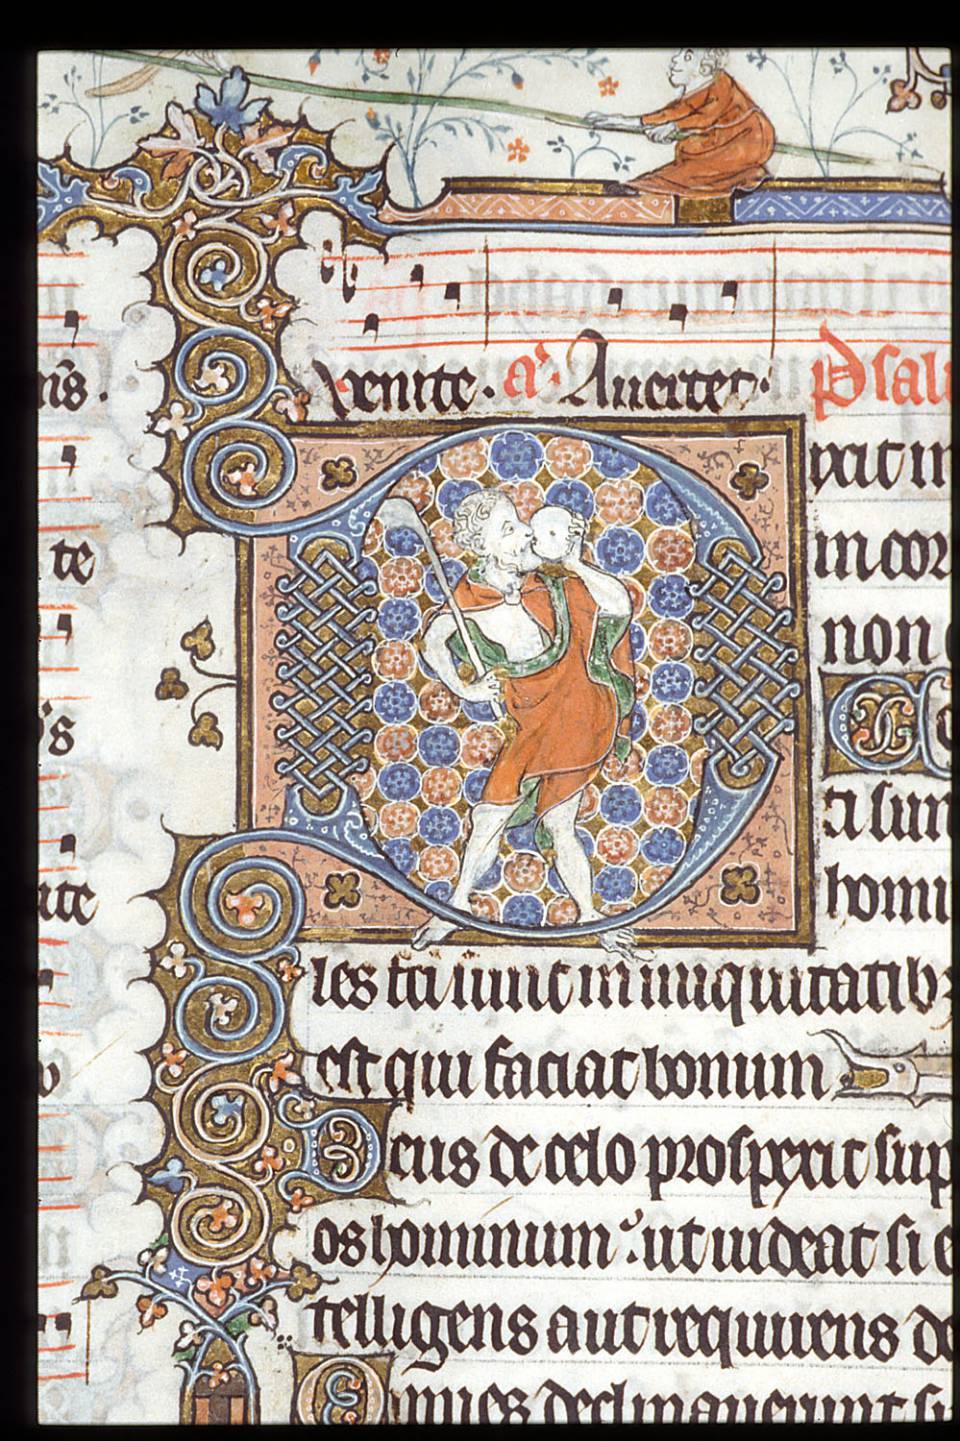 Venite. a. Auertet. Psal
Dixit in
in cor
non
C
ti sun
homi
les fci sunt in iniquitatibꝫ
est qui faciat bonum
Deus de celo prospexit sup
os hominum. ut uideat si e
telligens aut requirens de
Omnes declinauerunt si
te
ite